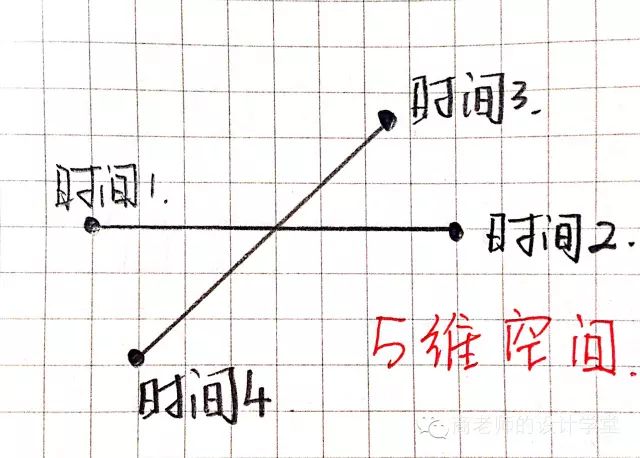 时间3.
时间1.
时间2.
5维空间.
时间4
商老师的设计学堂